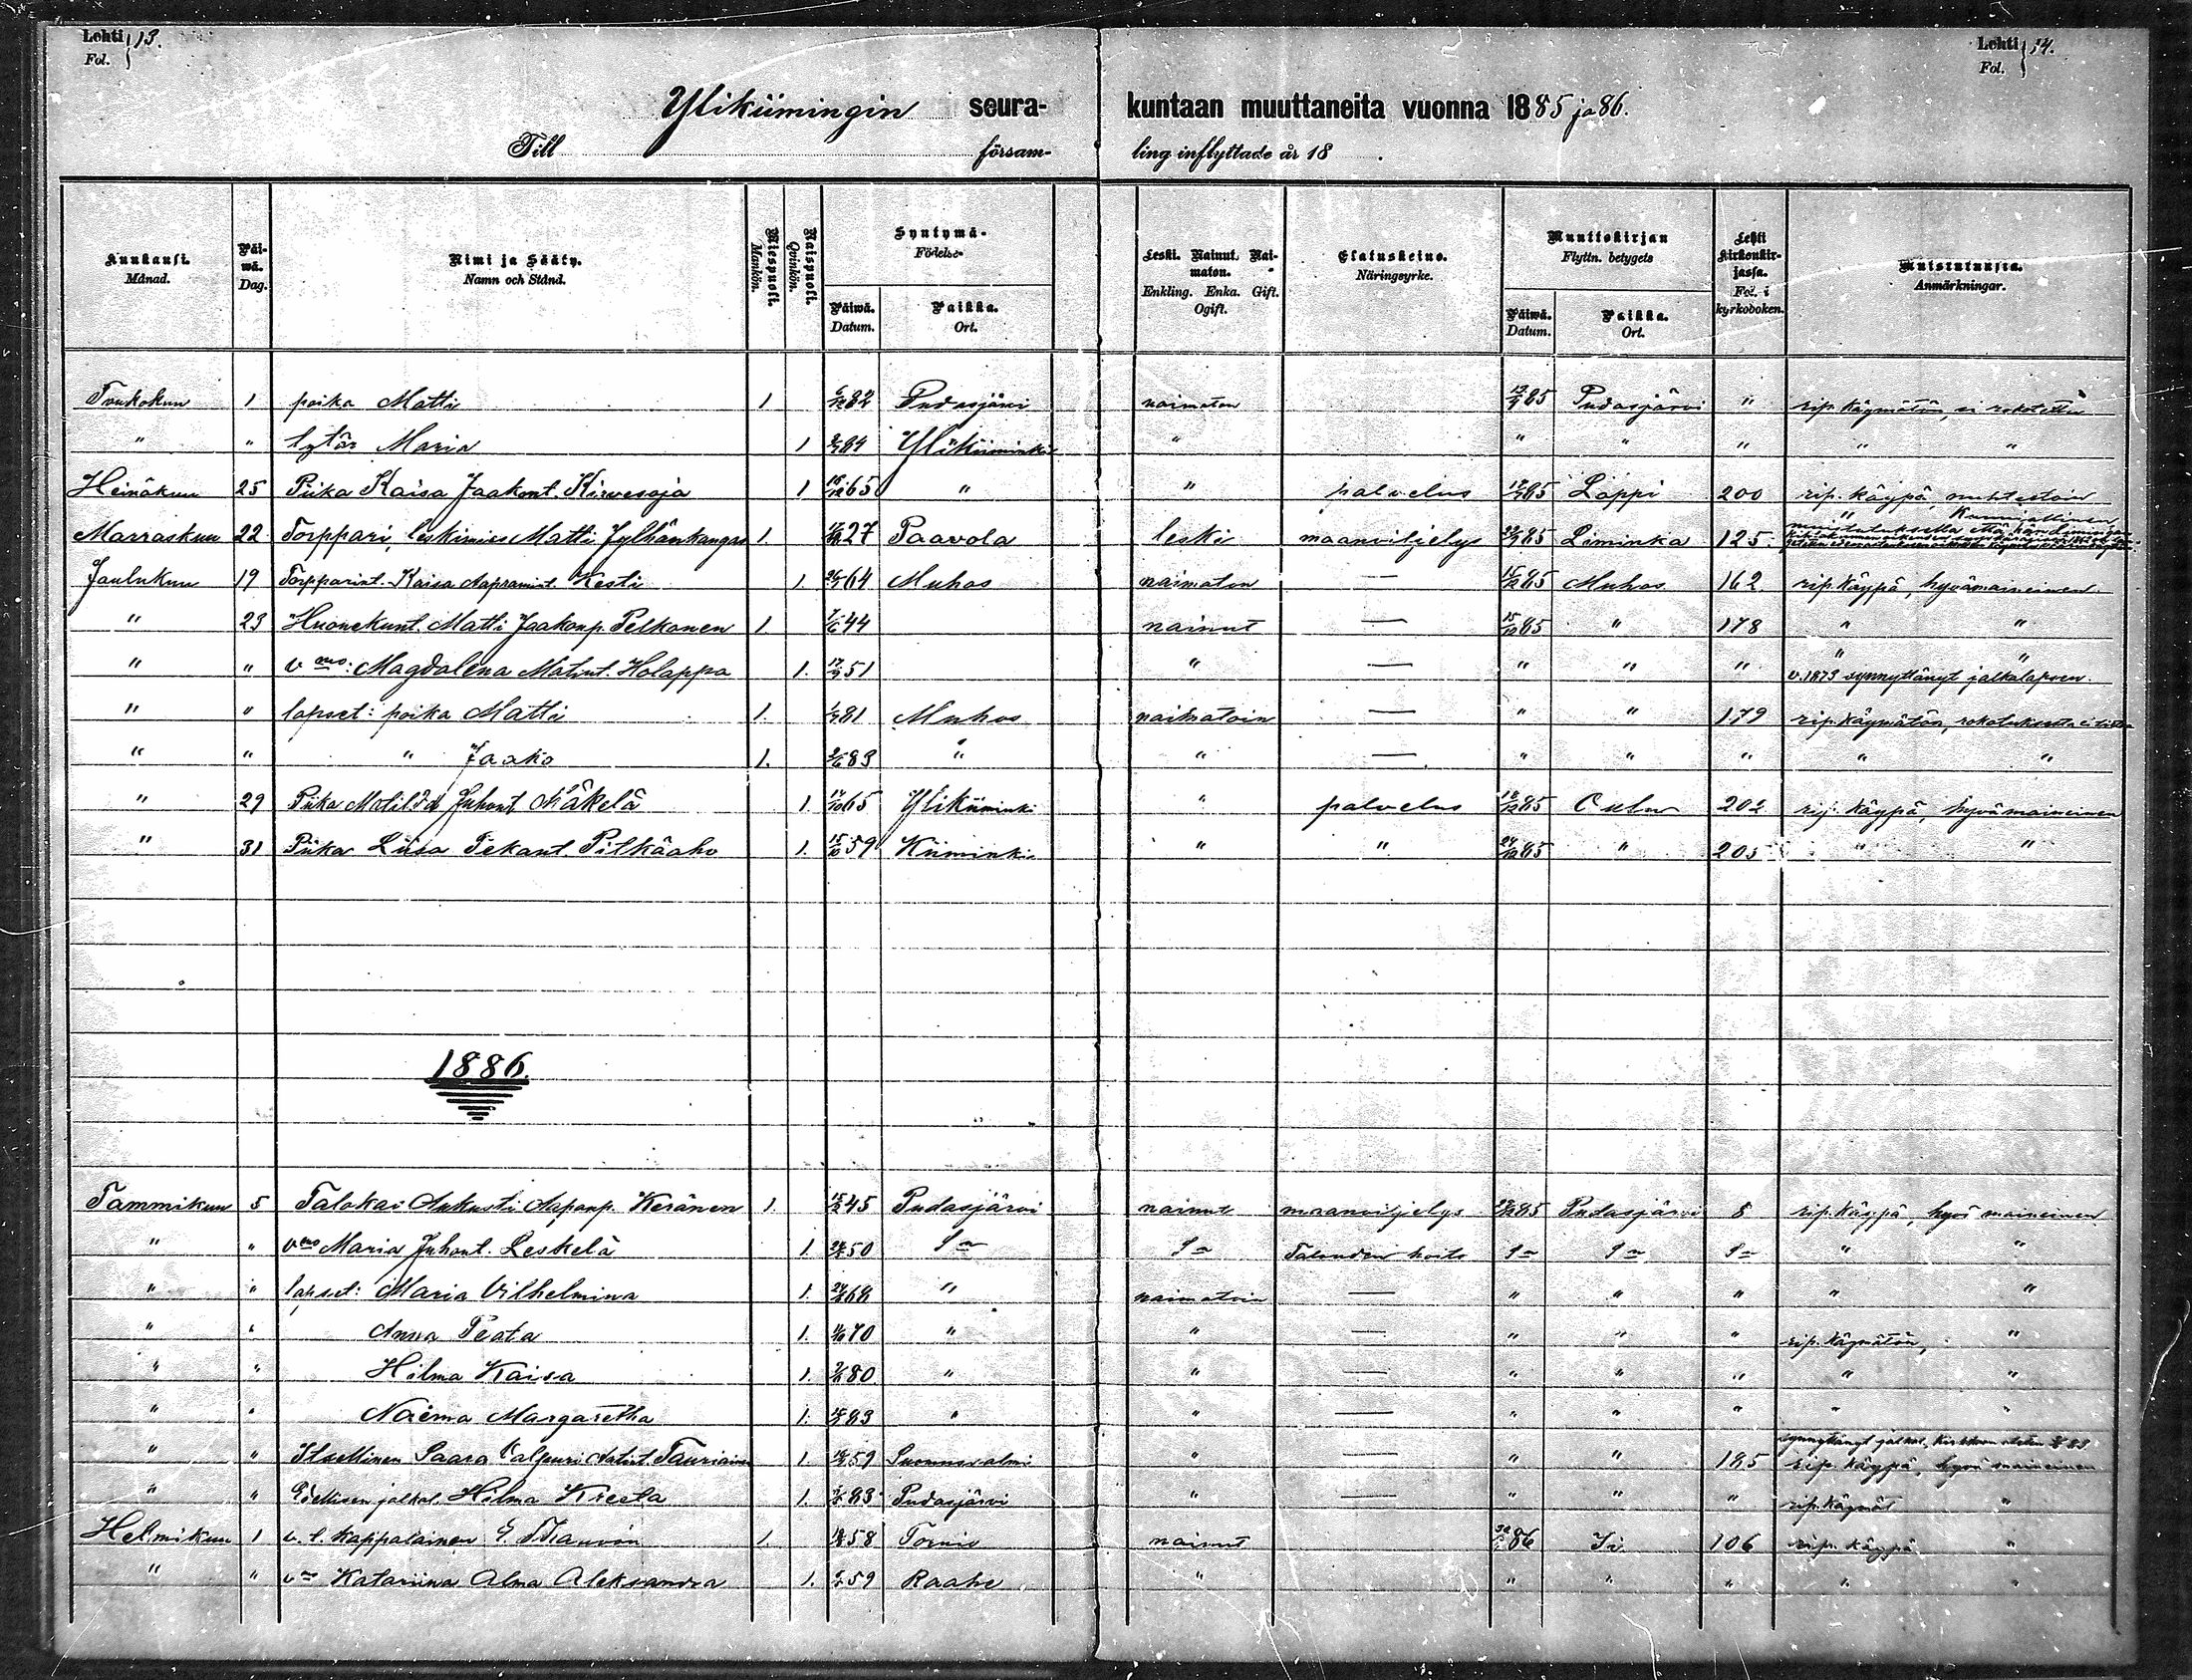 Lehti 13. Lehti 14.
Fol. Fol.
Ylikiimingin seura- kuntaan muuttaneita vuonna 1885 ja 86.
Till försam- ling inflyttade år 18 .
Kuukausi. Månad. Päi-wä. Dag. Nimi ja Sääty. Namn och Stånd. Miespuoli. Mankön. Naispuoli. Qvinkön. Syntymä- Födelse- Päiwä. Datum. Paikka. Ort. Leski. Nainut. Nai-maton. Enkling. Enka. Gift. Ogift. Elatuskeino. Näringsyrke. Muuttokirjan Flyttn. betygets Päiwä. Datum. Paikka. Ort. Lehti kirkonkir-jassa. Fol. i kyrkoboken. Muistutuksia. Anmärkningar.
Toukokuu 1 poika Matti 1 82 Pudasjärvi naimaton 85 Pudasjärvi " rip. käymätön, ei rokotettu
" " tytär Maria 1 84 Ylikiiminki " " " " " "
Heinäkuu 25 Piika Kaisa Jaakont. Kirvesoja 1 65 " " palvelus 85 Lappi 200 rip. käypä, nuhteetoin
Marraskuu 22 Torppari, leskimies Matti Jylhänkangas 1. 27 Paavola leski maanviljelys 85 Liminka 125. " Kunniallinen
Joulukuu 19 Torpparint. Kaisa Kesti 1. 64 Muhos naimaton — 15/12 85 Muhos 162 rip. käypä, hyvämaineinen.
" 23 Huonekunt. Matti Jaakonp. Pelkonen 1. 44 nainut — 85 " 178 " "
" " vmo: Magdalena Matint. Holappa 1. 51 " — " " " " " v. 1873 synnyttänyt jalkalapsen.
" " lapset: poika Matti 1. 81 Muhos naimatoin — " " 179 rip. käymätön,
" " " Jaako 1. 83 " " — " " " " "
" 29 Piika Matilda Juhont Mäkelä 1. 65 Ylikiiminki " palvelus 85 Oulu 202 rip. käypä, hyvämaineinen
" 31 Piika Liisa Pekant. Pitkäaho 1. 59 Kiiminki " " 85 " 205 " "
1886.
Tammikuu 5 Talokas Aukusti Aaponp. Keränen 1. 45 Pudasjärvi nainut maanviljelys 85 Pudasjärvi 8 rip. käypä, hyvä maineinen.
" " vmo Maria Juhont. Leskelä 1. 50 Sa Sa Talouden hoito Sa Sa Sa " "
" " lapset: Maria Vilhelmina 1. 68 " naimatoin — " " " " "
" " Anna Peata 1. 70 " " — " " " rip. käymätön, "
" " Hilma Kaisa 1. 80 " " — " " " " "
" " Naëma Margaretha 1. 83 " " — " " " " "
" " Itsellinen Saara Valpuri Matint. Tauriainen 1. 59 Suomussalmi " — " " 185 rip. käypä, hyvä maineinen
" " Edellisen jalkal. Hilma Kreeta 1. 83 Pudasjärvi " — " " " rip. käymät "
Helmikuu 1 v. t. kappalainen 1. 58 Tornio nainut 86 Ii 106 rip. käypä "
" " vmo Katariina Alma Aleksandra 1. 59 Raahe " " " " " "